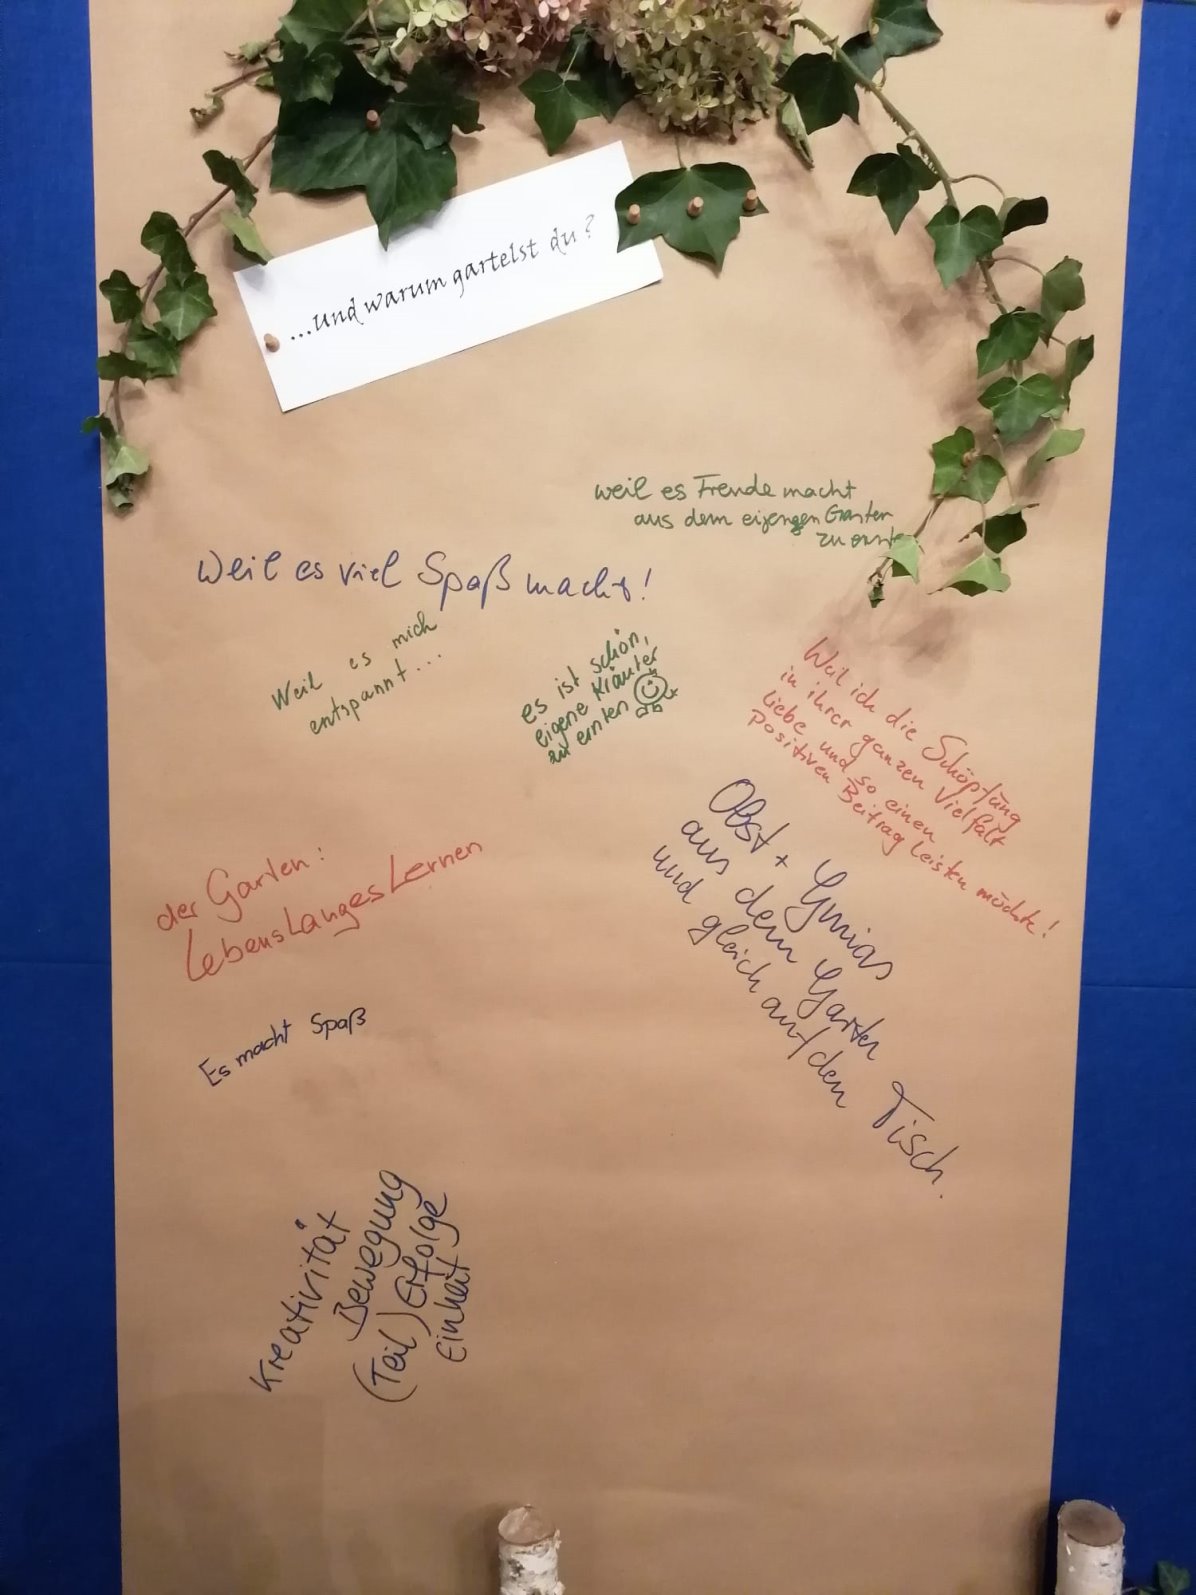 ...und warum gartelst du?
weil es Freude macht
aus dem eigenen Garten
zu ernten
Weil es viel Spaß macht!
Weil es mich
entspannt...
es ist schön,
eigene Kräuter
zu ernten
Weil ich die Schöpfung
in ihrer ganzen Vielfalt
liebe und so einen
positiven Beitrag leisten möchte!
Obst + Gmias
aus dem Garten
und gleich auf den Tisch.
der Garten:
LebensLanges Lernen
Es macht Spaß
Kreativität
Bewegung
(Teil) Erfolge
Einheit